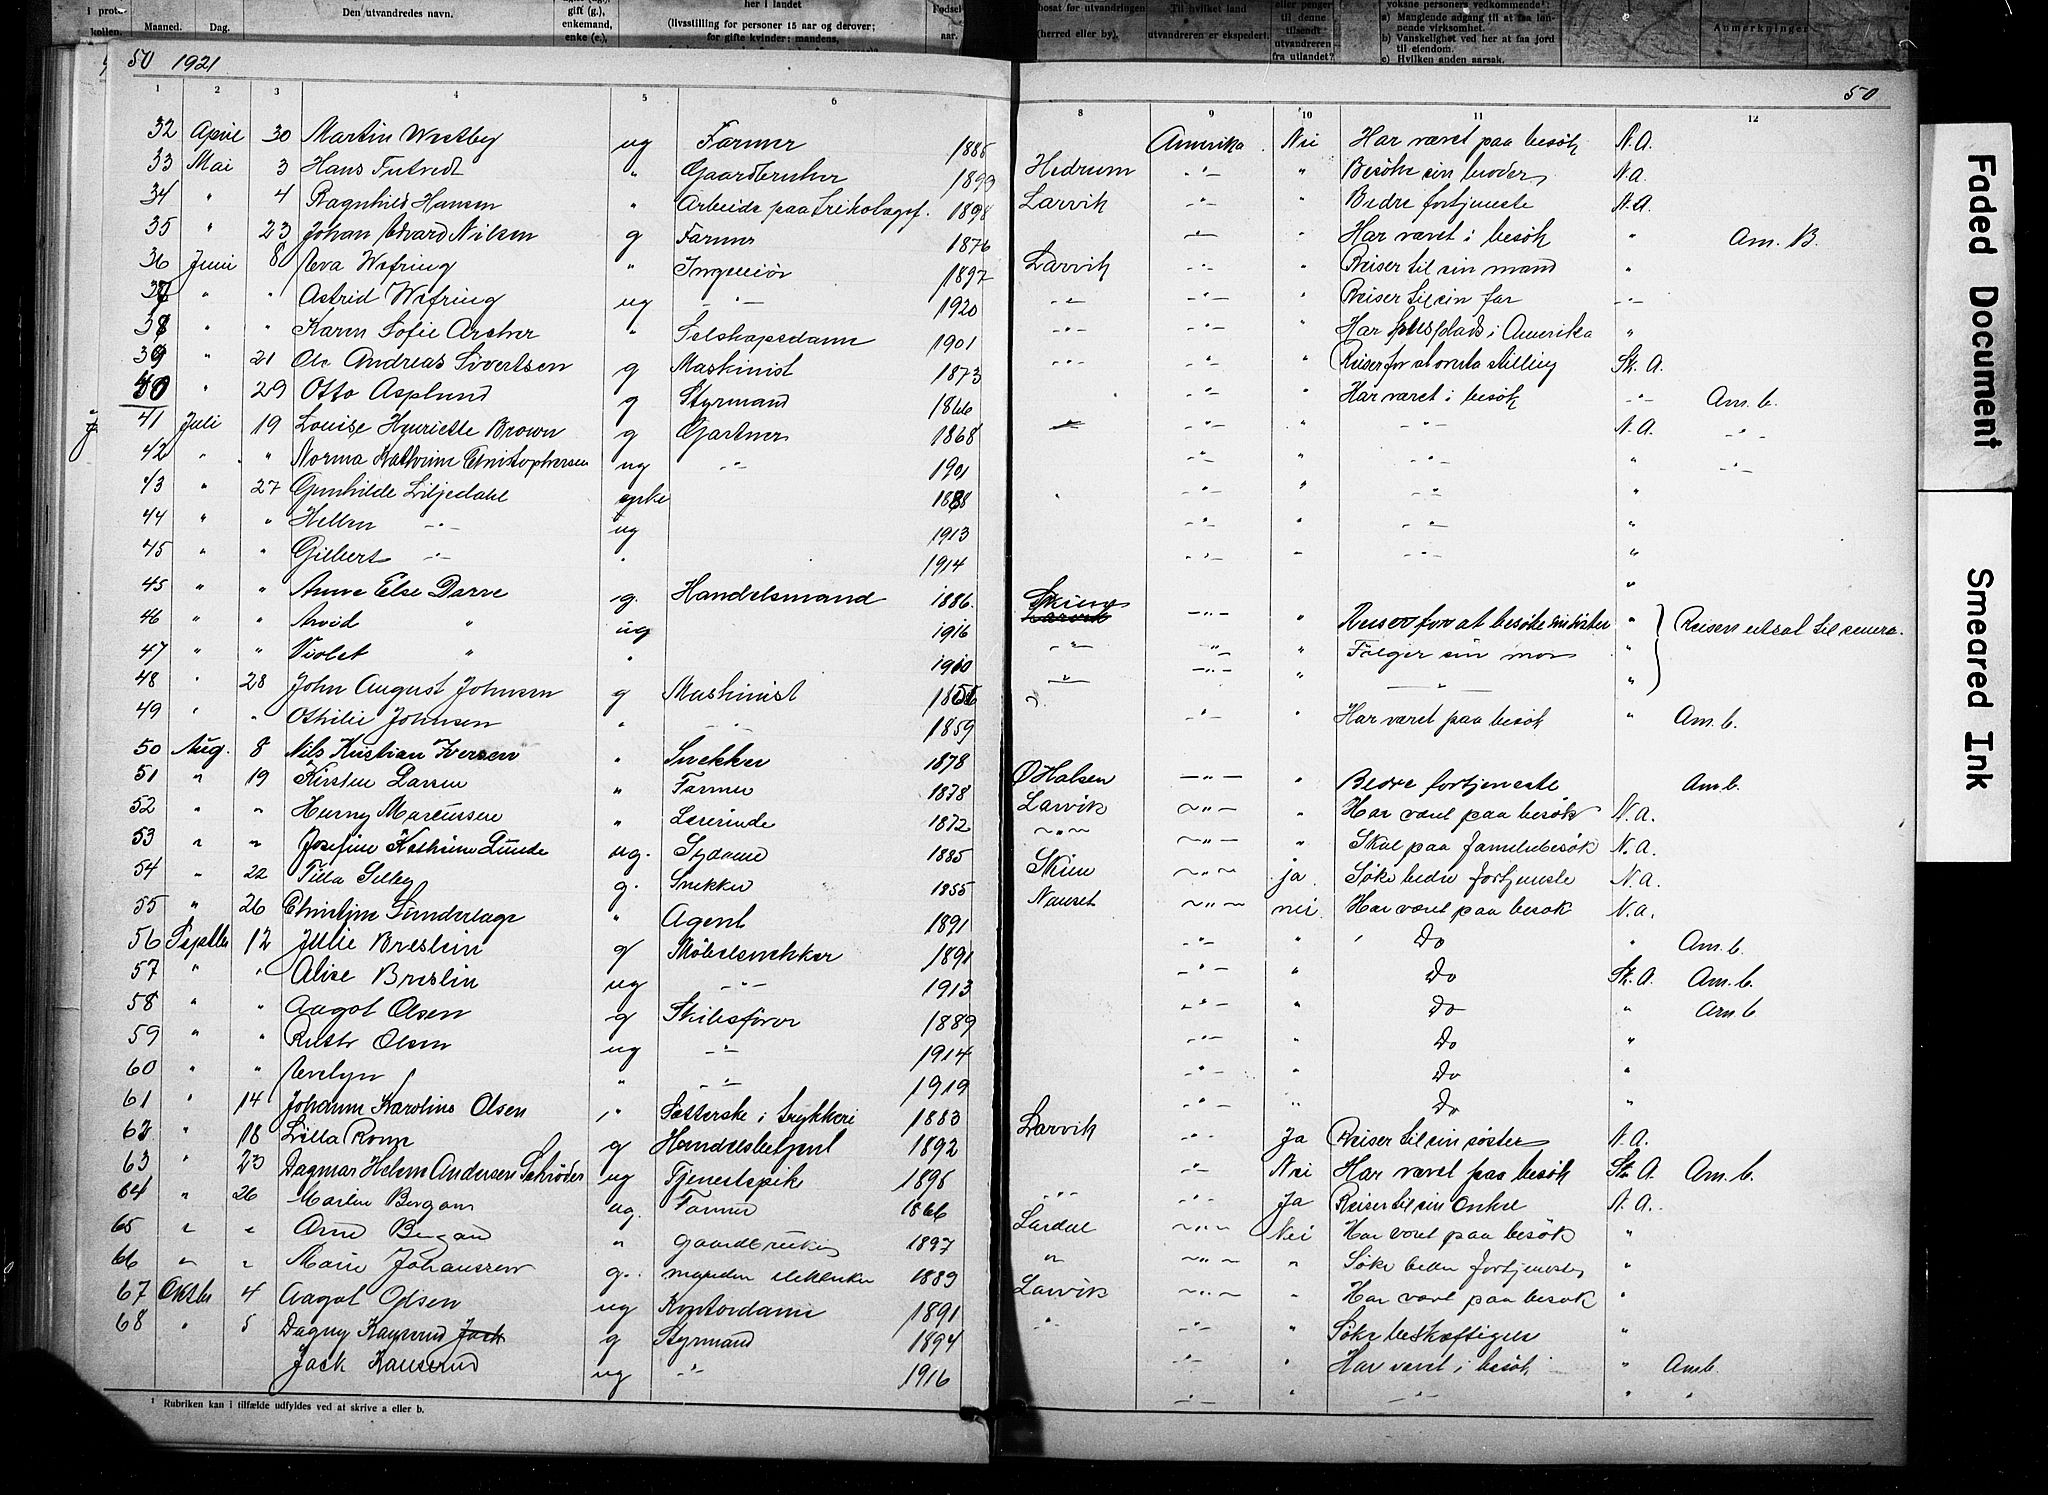 i proto-
kollen.
Maaned.
Dag.
Den utvandredes navn.
gift (g.),
enkemand,
enke (e.),
her i landet
(livsstilling for personer 15 aar og derover;
for gifte kvinder: mandens,
Fødsel
aar.
bosat før utvandringen
(herred eller by),
Til hvilket land
utvandreren er ekspedert.
eller penger
til denne
tilsendt
utvandreren
fra utlandet?
voksne personers vedkommende¹:
a) Manglende adgang til at faa løn-
nende virksomhet.
b) Vanskelighet ved her at faa jord
til eiendom.
c) Hvilken anden aarsak.
Anmerkninger
50 1921 50
1 2 3 4 5 6 8 9 10 11 12
32 April 30 Martin Westby ug Farmer 1885 Amerika Nei Har været paa besök N.A.
33 Mai 3 Hans " Gaardbruker 1893 Hedrum -"- " Besöke sin broder N.A.
34 " 4 Ragnhild Hansen " Arbeide paa Trikotagef. 1898 Larvik -"- " Bedre fortjeneste N.A.
35 " 23 Johan Edvard Nilsen g Farmer 1876 -"- " Har været i besök " Am. B.
36 Juni 8 Eva Wefring " Ingeniör 1897 Larvik -"- " Reiser til sin mand "
37 " " Astrid Wefring ug -"- 1920 -"- -"- " Reiser til sin far -"-
38 " " Karen Sofie Archer " Selskapsdame 1901 -"- -"- " Har plads i Amerika "
39 " 21 Ole Andreas Sivertsen g Maskinist 1873 -"- -"- " Reiser for at overta stilling Sk. A.
40 " 29 Otto Asplund g Styrmand 1866 -"- " Har været i besök -"- Am. b.
41 Juli 19 Louise Henriette Brown g Gartner 1868 -"- -"- " -"- N.A. -"-
42 " " Norma Kathrine Christophersen ug -"- 1901 -"- " -"- " -"-
43 " 27 Gunhilde Liljedahl enke 1888 -"- " -"- "
44 " " Hellen -"- ug 1913 -"- " -"- "
45 " " Gilbert -"- " 1914 -"- " -"- "
45 " " Anne Else Darre g. Handelsmand 1886. Skien -"- " Reiser for at besöke sin söster " Reisen utsat til senere.
46 " " Arvid " ug 1916 -"- -"- " Følger sin mor "
47 " " Violet " " 1910 -"- -"- " -"- "
48 " 28 John August Johnsen g Maskinist -"- " Har været paa besök " Am. b.
49 " " Othilie Johnsen " -"- 1859
50 Aug. 8 Nils Kristian Iversen " Snekker 1878 Ø Halsen -"- " Bedre fortjeneste Am b.
51 " 19 Kirsten Larsen " Farmer 1878 Larvik -"- " Har været paa besök N.a.
52 " " Henny Marcussen " Lærerinde 1872 -"- -"- " Skal paa familiebesök N.a.
53 " " Josefine Kathrine Lunde ug. 1885 Skien -"- ja Söke bedre fortjeneste N.a.
54 " 22 Tilla Selby g. Snekker 1855 -"- nei Har været paa besök N.a.
55 " 26 Christine " Agent 1891 -"- " Do " Am. b.
56 Septbr 12 Julie Breslin g Möbelsnekker 1891 -"- " Do Sk. A. Am. b.
57 " " Alise Breslin ug -"- 1913 -"- " Do " Am. b
58 " " Aagot Olsen g Skibsförer 1889 -"- " Do "
59 " " Olsen ug -"- 1914 -"- " Do "
60 " " Evelyn " -"- 1919 -"- " Do "
61 " 14 Johanne Karoline Olsen " Sætterske i trykkeri 1883 Larvik -"- Ja Reiser til sin söster N.A.
62 " 18 Lilla g Handelsbetjent 1892 -"- Nei Har været paa besök Sk. A. Am. b.
63 " 23 Dagmar Helene Andersen Schröder ug Tjenestpike 1896 -"- -"- Ja Reiser til sin onkel N.A.
64 " 26 Martin Bergan ug. Farmer 1866 Lardal -"- Nei Har været paa besök "
65 " " Arne Bergan " gaardbruker 1897 " -"- " Söke bedre fortjeneste "
66 " " Marie Johanssen g. manden elektriker 1889 Larvik -"- " Har været paa besök "
67 Oktbr 4 Aagot Olsen ug Kontordame 1891 -"- -"- " Söke beskjæftigelse "
68 " 5 Dagny g Styrmand 1894 -"- " Har været i besök " Am b.
Jack ug -"- 1916 -"- " -"- " "
¹ Rubriken kan i tilfælde udfyldes ved at skrive a eller b.
Faded Document
Smeared Ink